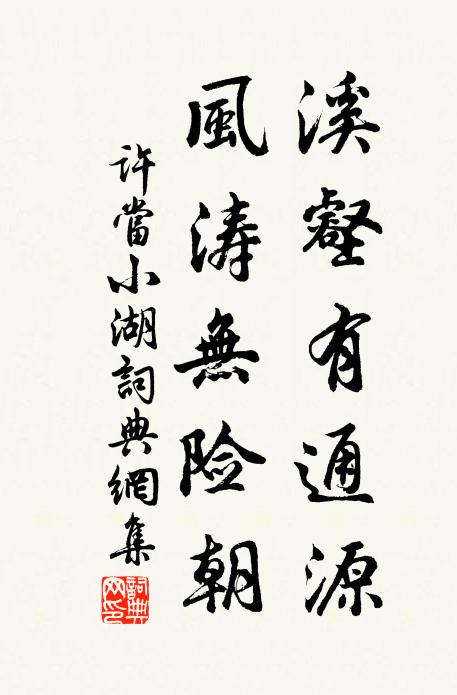 溪壑有通源
風涛無险朝
許當小湖詞典網集
詞典
网印